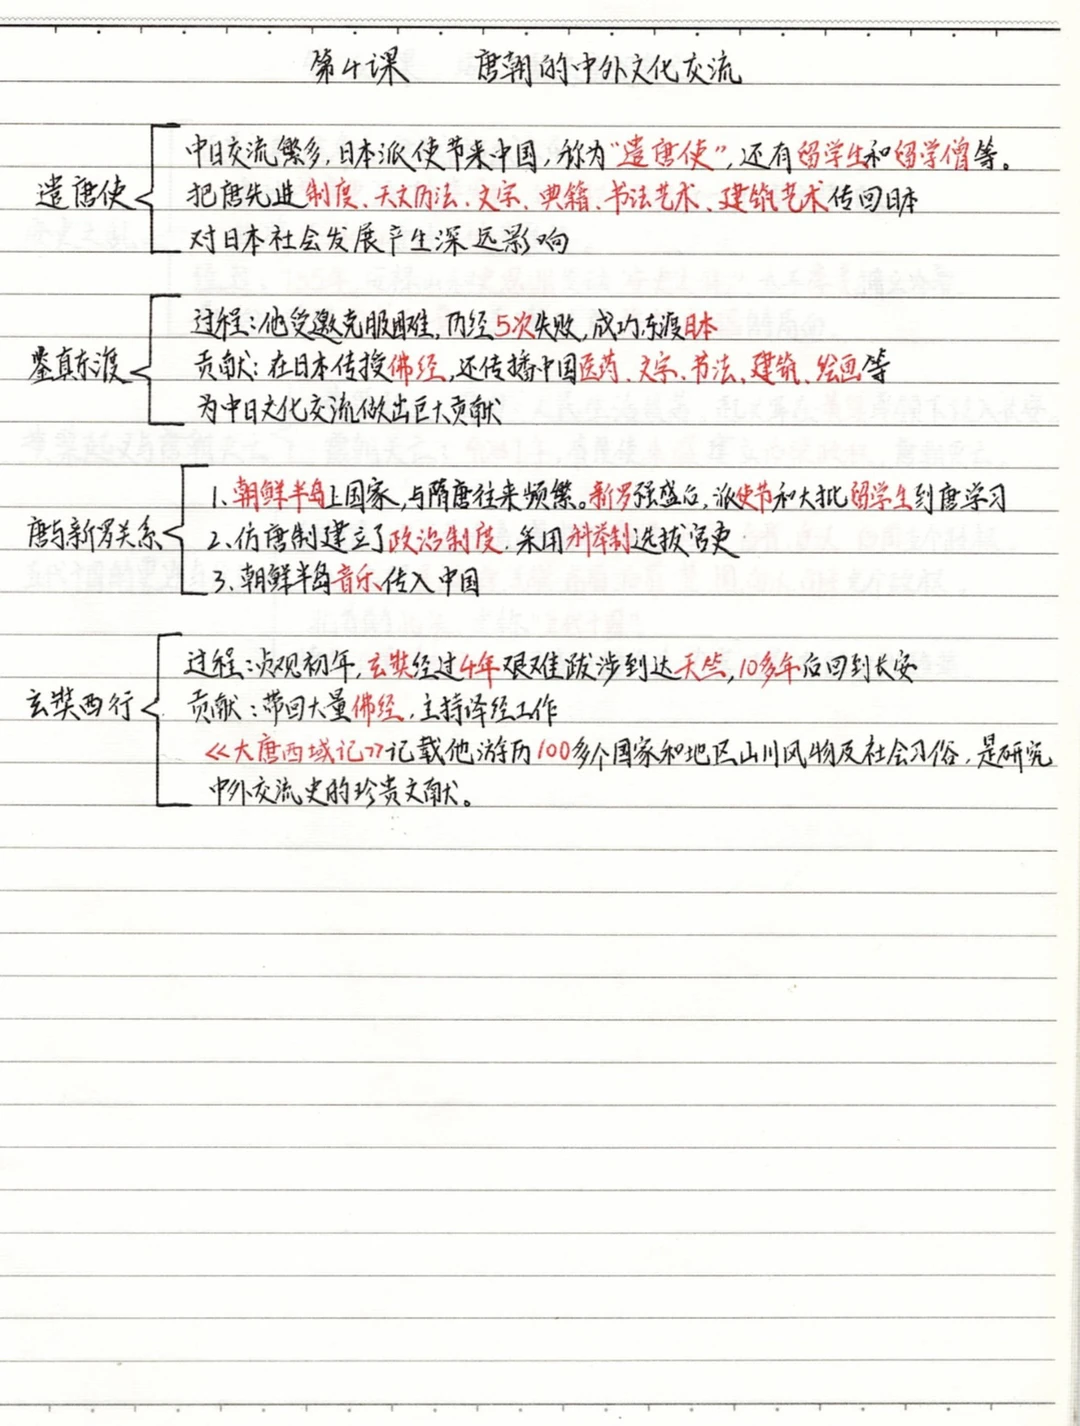 第4课 唐朝的中外文化交流
中日交流繁多,日本派使节来中国,称为"遣唐使",还有留学生和留学僧等。
遣唐使
把唐先进制度、天文历法、文字、典籍、书法艺术、建筑艺术传回日本
对日本社会发展产生深远影响
过程:他受邀克服困难,历经5次失败,成功东渡日本
鉴真东渡
贡献:在日本传授佛经,还传播中国医药、文字、书法、建筑、绘画等
为中日文化交流做出巨大贡献
1、朝鲜半岛上国家,与隋唐往来频繁。新罗强盛后,派使节和大批留学生到唐学习
唐与新罗关系
2、仿唐制建立了政治制度,采用科举制选拔官吏
3、朝鲜半岛音乐传入中国
过程:贞观初年,玄奘经过4年艰难跋涉到达天竺,10多年后回到长安
玄奘西行
贡献:带回大量佛经,主持译经工作
《大唐西域记》记载他游历100多个国家和地区山川风物及社会习俗,是研究
中外交流史的珍贵文献。